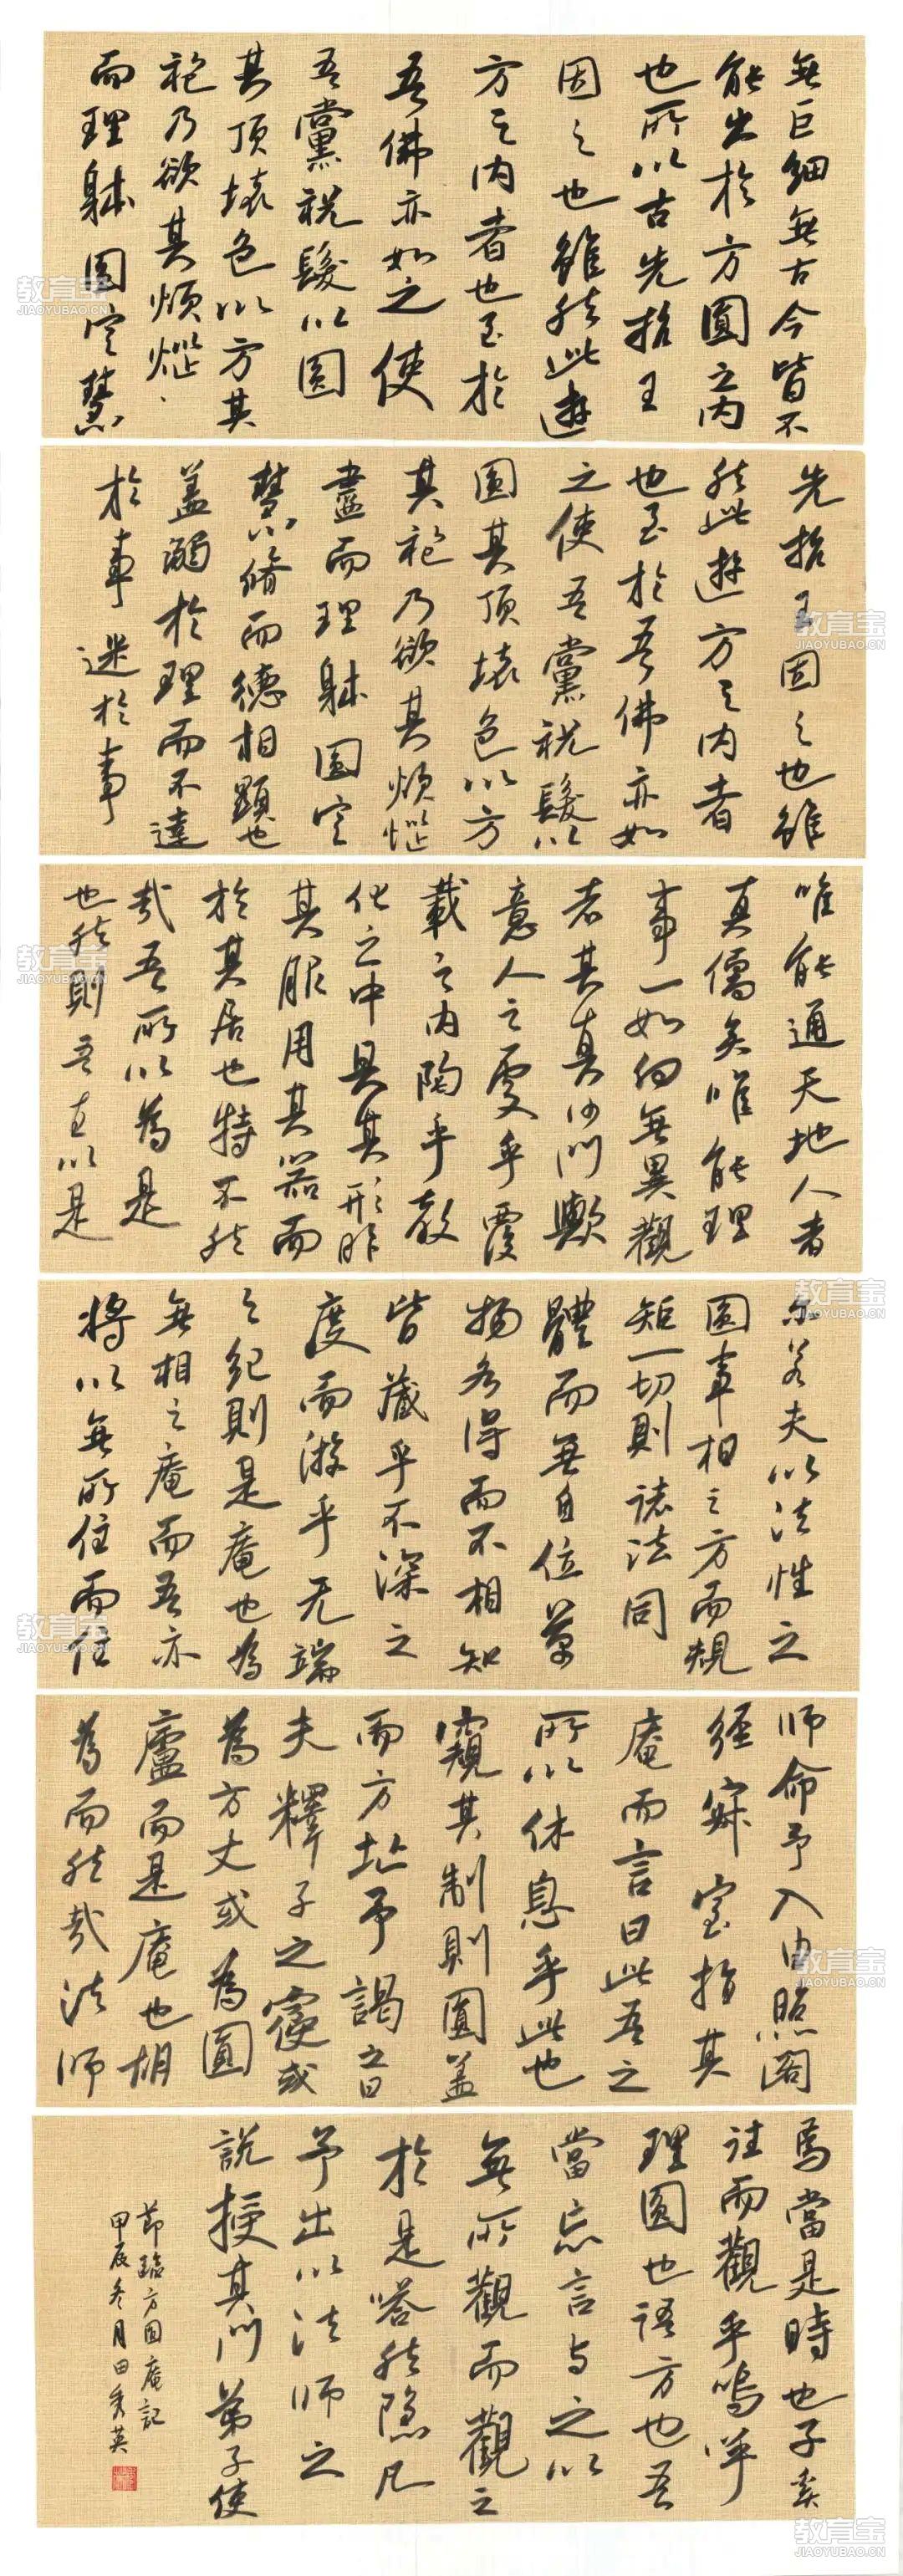 無巨細無古今皆不
能出於方圓之內
也所以古先哲王
因之也雖然此遊
方之內者也至於
吾佛亦如之使
吾黨祝髮以圓
其頂壞色以方其
袍乃欲其煩惱
而理躰圓定慧
先哲王因之也雖
然此遊方之內者
也至於吾佛亦如
之使吾黨祝髮以
圓其頂壞色以方
其袍乃欲其煩惱
盡而理躰圓定
慧脩而德相顯也
盖溺於理而不達
於事迷於事
唯能通天地人者
真儒矣唯能理
事一如向無異觀
者其真沙門歟
意人之處乎覆
載之內陶乎教
化之中具其形
其服用其器而
於其居也特不然
哉吾所以為是
也然則吾直以是
尔若夫以法性之
圓事相之方而規
矩一切則諸法同
體而無自位萬
物各得而不相知
皆藏乎不深之
度而游乎无端
之紀則是庵也為
無相之庵而吾亦
將以無所住而住
師命予入由照閣
經寂室指其
庵而言曰此吾之
所以休息乎此也
窺其制則圓盖
而方址予謁之曰
夫釋子之寢或
為方丈或為圓
廬而是庵也胡
為而然哉法師
焉當是時也子奚
往而觀乎嗚呼
理圓也語方也吾
當忘言与之以
無所觀而觀之
於是嗒然隱几
予出以法師之
說授其門弟子使
節臨方圓庵記
甲辰冬月田秀英
教育宝
JIAOYUBAO.CN
教育宝
JIAOYUBAO.CN
教育宝
JIAOYUBAO.CN
教育宝
JIAOYUBAO.CN
教育宝
JIAOYUBAO.CN
教育宝
JIAOYUBAO.CN
教育宝
JIAOYUBAO.CN